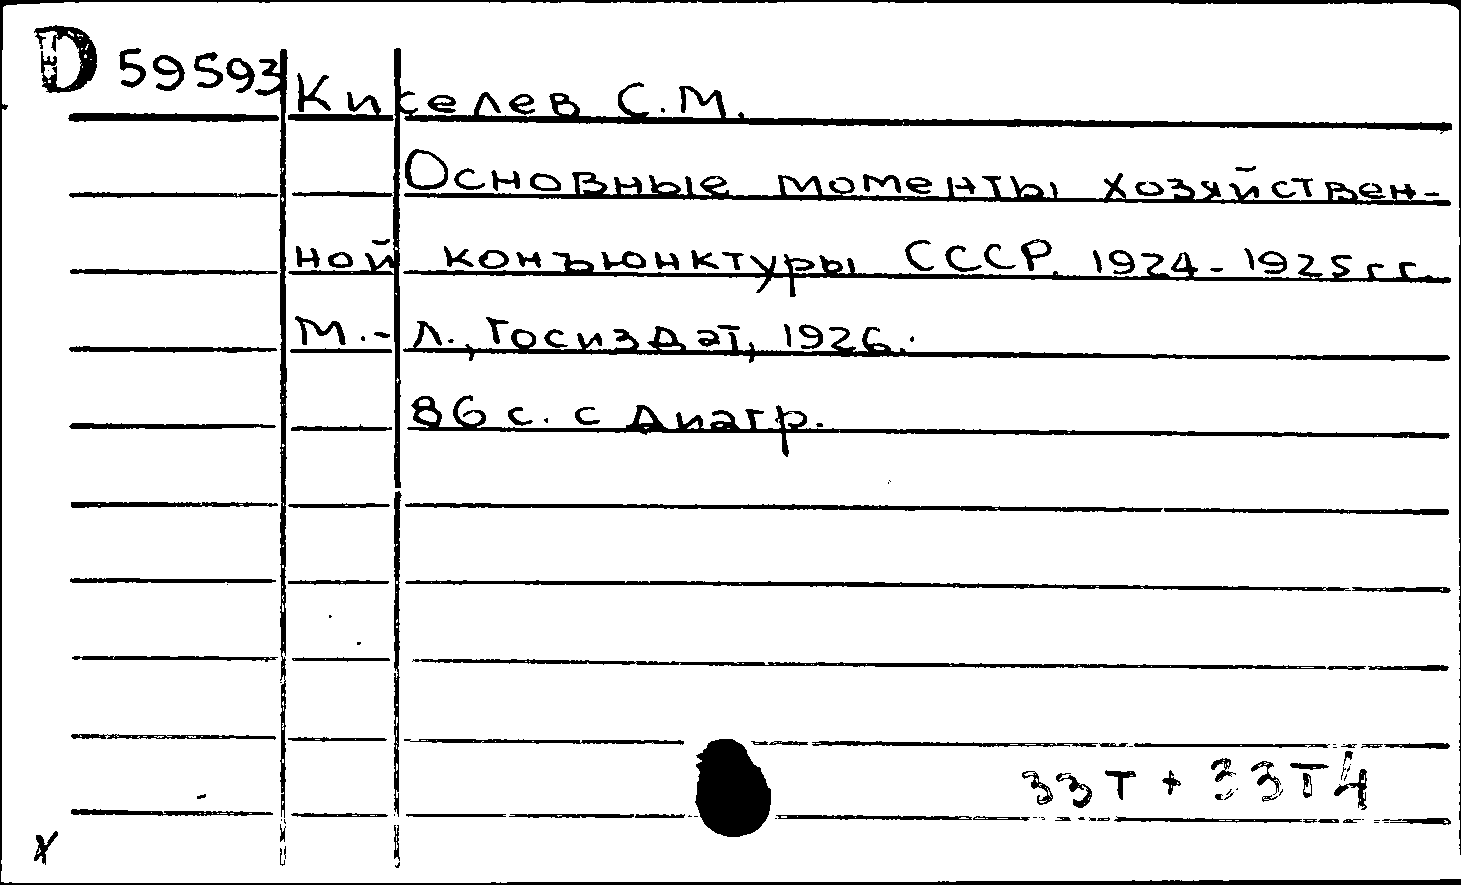 D 59593 Киселев С.М.
Основные моменты хозяйствен-
ной конъюнктуры СССР. 1924-1925 гг.
М.-Л., Госиздат, 1926.
86 с. с диагр.
33Т + 33Т4